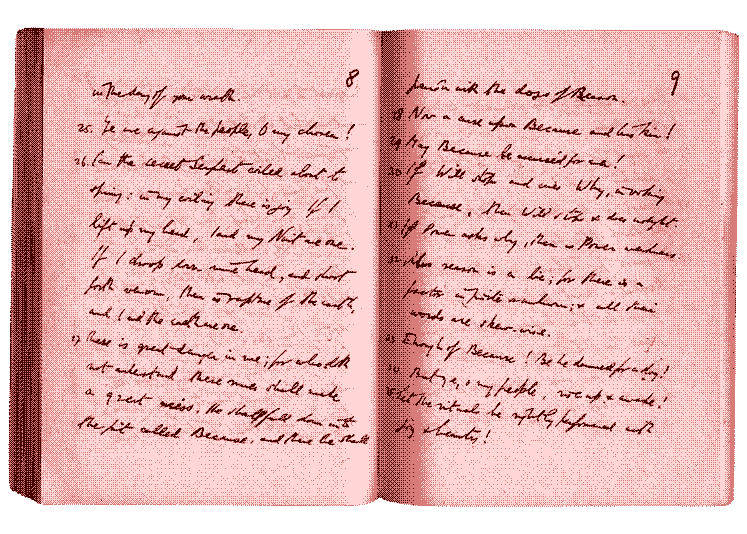 8
in the day of your wrath.
25. Ye are against the people, O my chosen!
26. I am the secret Serpent coiled about to
spring: in my coiling there is joy. If I
lift up my head, I and my Nuit are one.
If I droop down mine head, and shoot
forth venom, then is rapture of the earth,
and I and the earth are one.
27 There is great danger in me; for who doth
not understand these runes shall make
a great miss. He shall fall down into
the pit called Because, and there he shall
9
perish with the dogs of Reason.
28 Now a curse upon Because and his kin!
29 May Because be accursèd for ever!
30 If Will stops and cries Why, invoking
Because, then Will stops & does nought.
31 If Power asks why, then is Power weakness.
32 Also reason is a lie; for there is a
factor infinite & unknown; & all their
words are skew-wise.
33 Enough of Because! Be he damned for a dog!
34 But ye, o my people, rise up & awake!
35 Let the rituals be rightly performed with
joy & beauty!